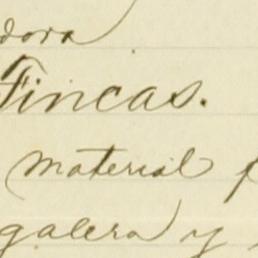 dora
Fincas.
material
galera y